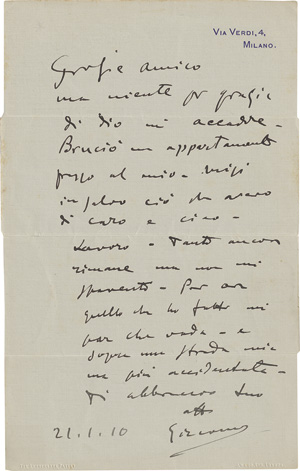 Via Verdi, 4,
Milano.
Grazie amico
ma niente per grazia
di dio mi accadde -
Bruciò un appartamento
presso al mio - misi
in salvo ciò che avevo
di caro e ciao -
Lavoro - Tanto ancora
rimane ma non mi
spavento - Per ora
quello che ho fatto mi
par che vada - e
sopra una strada mia
ma più accidentata -
Ti abbraccio tuo
aff
Giacomo
21.1.10